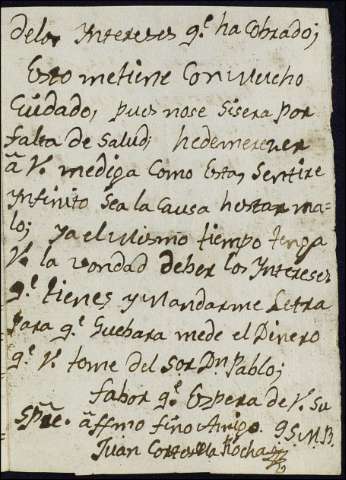 delos Intereses q.e ha Cobrado;
Esto metiene Con Mucho
Cuidado, pues nose Sisera por
falta de Salud; hedemerezer
â V. mediga Como Esta, Sentire
Infinito Sea la Causa hestar ma=
lo; ya el Mismo tiempo tenga
V. la vondad deber los Intereses
q.e tienes y Mandarme Letra
para q.e Guebara mede el Dinero
q.e V. tome del Sor Dn Pablo;
fabor q.e Espera de V. Su
Spre. âffmo fino Amigo. q S. M. B.
Juan Cortes dela Rocha